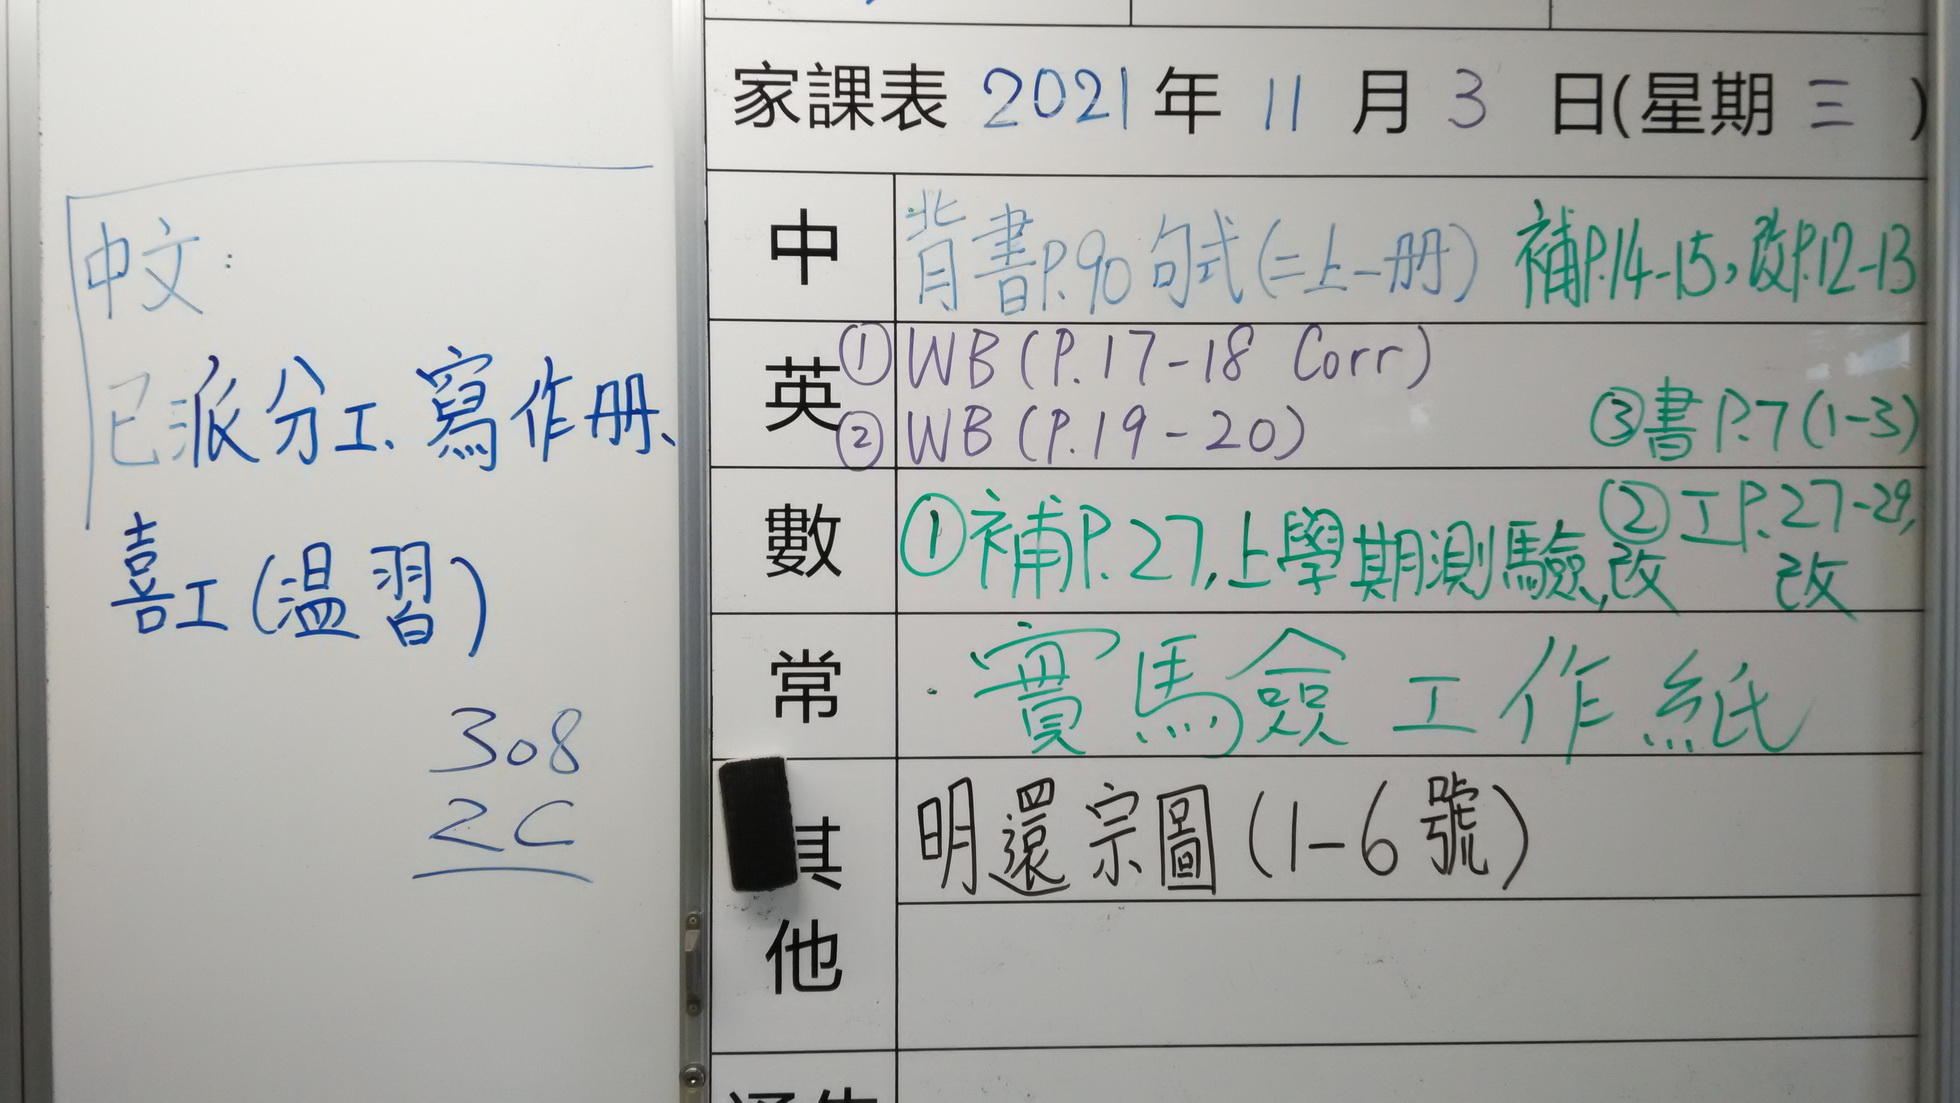 中文：
已派分工、寫作冊、
喜工(温習)
308
2C
家課表 2021 年 11 月 3 日(星期 三 )
中 背書P.90句式(二上一冊) 補P.14-15，改P.12-13
英 ① WB (P.17-18 Corr)
② WB (P.19-20) ③書P.7(1-3)
數 ①補P.27,上學期測驗,改 ②工P.27-29,改
常 實驗工作紙
其他 明還宗圖(1-6號)